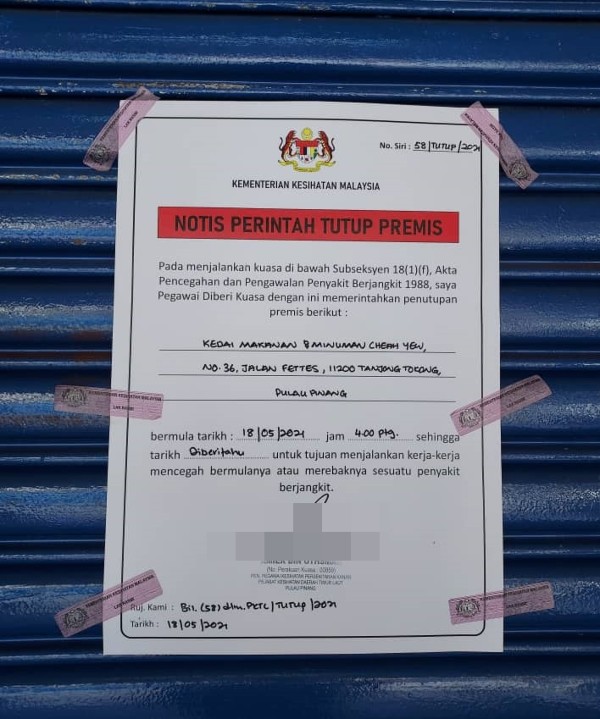 No. Siri : 58/TUTUP/2021
KEMENTERIAN KESIHATAN MALAYSIA
NOTIS PERINTAH TUTUP PREMIS
Pada menjalankan kuasa di bawah Subseksyen 18(1)(f), Akta
Pencegahan dan Pengawalan Penyakit Berjangkit 1988, saya
Pegawai Diberi Kuasa dengan ini memerintahkan penutupan
premis berikut :
KEDAI MAKANAN & MINUMAN CHEAH YEW,
NO. 36, JALAN FETTES, 11200 TANJONG TOKONG,
PULAU PINANG
bermula tarikh : 18/05/2021 jam 4.00 ptg. sehingga
tarikh Diberitahu untuk tujuan menjalankan kerja-kerja
mencegah bermulanya atau merebaknya sesuatu penyakit
berjangkit.
PULAU PINANG
Ruj. Kami : Bil. (58) dlm. PKTL/TUTUP/2021
Tarikh : 18/05/2021
KEMENTERIAN KESIHATAN MALAYSIA